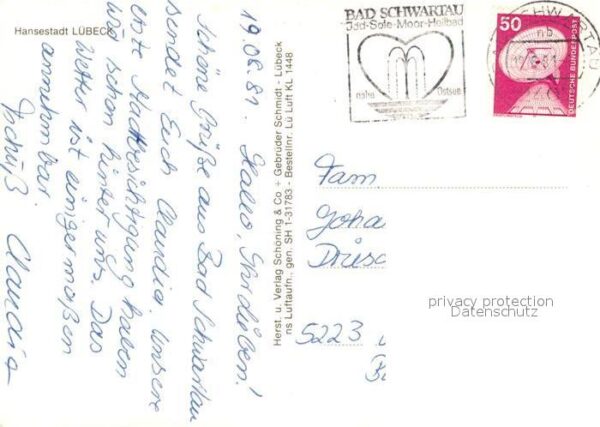 Hansestadt LÜBECK
19.08.81. Hallo, Ihr Lieben!
Schöne Grüße aus Bad Schwartau
sendet Euch Claudia. Unsere
erste Stadtbesichtigung haben
wir schon hinter uns. Das
Wetter ist einigermaßen
annehmbar.
Tschüß. Claudia
Herst. u. Verlag Schöning & Co + Gebrüder Schmidt - Lübeck
ns Luftaufn., gen. SH 1-31783 - Bestellnr. Lü Luft KL 1448
BAD SCHWARTAU
Jod-Sole-Moor-Heilbad
nahe Ostsee
SCHWARTAU
nb
50
DEUTSCHE BUNDESPOST
Fam
Joha
5223
privacy protection
Datenschutz